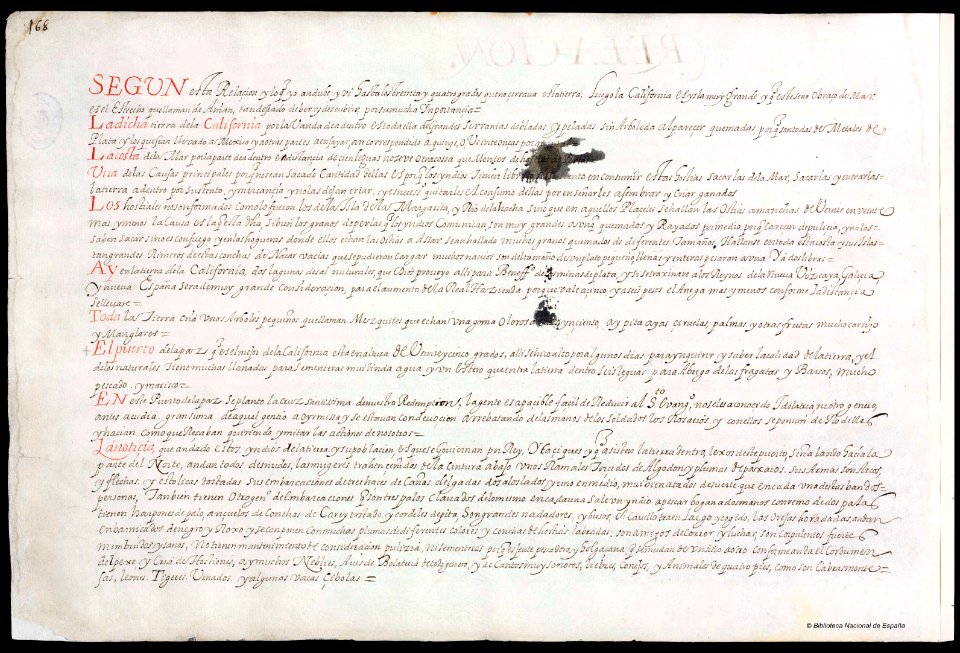 168
SEGUN esta Relacion y lo q yo andube y vi hasta los treinta y quatro grados que no creo una es tierra, Juzgo la California es ysla muy grande y q es Meseno o braço de Mar
es el estrecho que llaman de Anian, tan deseado de ber y descubrir, por su mucha Inportancia =
La dicha tierra de la California por la vanda de adentro es toda ella de grandes serranias dobladas y peladas sin Arboleda al parecer quemadas por q san todas de Metales de
Plata y los que se an llevado a Mexico y a otras partes a ensayar, an correspondido a quinze, o Veinte onças por
La costa de la Mar por la parte de adentro en distancia de cien leguas no se ve otra cosa que Montes de hostias de
Una de las Causas principales por q no sean Sacado Cantidad dellas es por q los yndios tienen libre en consumir Estas hostias sacarlas de la Mar, Sacarlas y enterarlas
la tierra adentro por sustento, y mitancia y no las dejan criar, y es necess quitarles el consumo dellas por enseñarles a sembrar y Criar ganados
Los hostiales no son formados como lo fueron los de la Isla de la Margarita, y Rio de la hacha sino que en aquellos Placeles se hallan las Ostias a manchas de Veinte en veinte
mas y menos la Causa es la pesca dha, si bien los granos de perlas q los yndios Comunican, son muy grandes aunq quemados y Rayados por medio, por q carecen de pulicia, y no los
saben sacar sino es con fuego, y en las hogueras donde ellos echan las Ostias a Assar se an hallado muchos granos quemados de diferentes Tamaños, Hallanse en toda esta costa y sus Islas
tan grandes Rimeros destas conchas de Nacar vacias que se pudieron cargar muchos navios son del tamaño de un plato pequeño llenas y enteras pesaran a una y a dos libras =
Ay en la tierra de la California, dos lagunas de sal naturales, que Dios proveyo alli para Beneff de las minas de plata, y si se traxinare a los Reynos de la Nueva Vizcaya, Galicia
y nueva España sera de muy grande consideracion, para el aumento de la Real Hazienda porque vale a cinco y a seis pesos el anega mas y menos conforme la distancia a
se llevare =
Toda la Tierra cria unos Arboles pequeños que llaman Mezquites que echan una goma Olorosa ynciensso, ay pitayas ciruelas, palmas y otras frutas mucho carrizo
y Manglares =
El puerto de la paz q es el mejor de la California esta en altura de Veinte y cinco grados, alli se hizo alto por algunos dias para ynquirir y saber la calidad de la tierra, y el
de los naturales tiene muchas llanadas para sementeras mui linda agua y un Estero que entra la tierra dentro seis leguas para Abrigo de las fragatas y Barcos, mucho
pescado y marisco =
En este Puerto de la paz se planto la Cruz Santissima de nuestro Redemptor, la gente es apacible facil de Reducir al S Evang, no se les a conocido Idolatria ni otro genero,
antes acudia gran suma de aquel gentio a oyr missa y se estavan con devocion arrebatando de las manos de los soldados los Rosarios, y con ellos se ponian de Rodillas
y hacian como que Reçaban quiriendo ymitar las actiones de nosotros =
La noticia que an dado estos yndios de la tierra y su poblacion es que se Goviernan por Rey, y Caciques y q asisten la tierra dentro, lexos deste puerto, señalando hacia la
parte del Norte, andan todos desnudos, las mugeres traen çeñidos de la Cintura abajo unos Ramales Torcidos de Algodon y plumas de paxaros. sus Armas son Arcos,
y flechas, y estolicas tostadas sus embarcaciones de tres haces de cañas delgadas dos a los lados, y uno en medio, mui bien atados de suerte que en cada una dellas ban dos
personas, Tambien tienen Otro gen de embarcaciones q son tres palos clavados de lo mismo en cada una sale un yndio a pescar bogan a dos manos con remo de dos palas
tienen harpones de palo, ançuelos de conchas de Carey tostado, y cordeles de pita, son grandes nadadores, y busos, el Cavello traen Largo y cogido, las Orejas horadadas, andan
enbarnicados de negro y Roxo y se componen con muchas plumas de diferentes colores y conchas de hostias labradas, son amigos de correr y luchar, son corpulentos fuertes
membrudos y sanos, No tienen mantenimiento de consideracion pulicia, ni sementeras por q es su fruta pescaderia y holgaçana q se mudan de un sitio a otro conforme anda el cardumen
del pexe y Cria de Hostiones, ay muchos Neblies, Aves de Bolateria de todo genero, y de Cantos muy sonoros, liebres, Conejos, y Animales de quatro pies, como son Cabras monte-
ses, leones Tigeres Venados. y algunas vacas Cibolas =
© Biblioteca Nacional de España